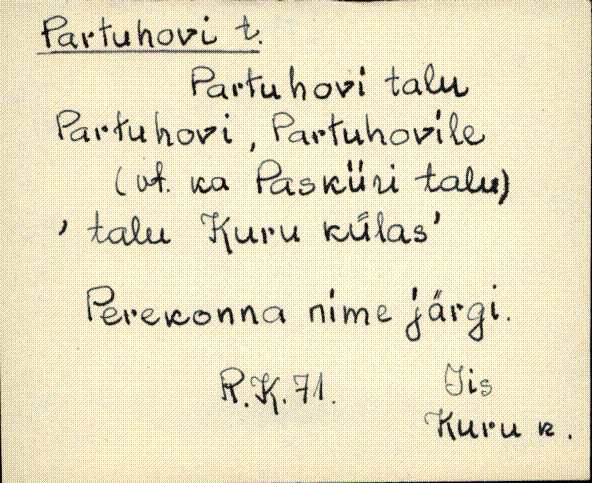 Partuhovi t.
Partuhovi talu
Partuhovi, Partuhovile
(vt. ka Pasküri talu)
, talu Kuru külas'
Perekonna nime järgi.
R.K.71. Iis
Kuru k.